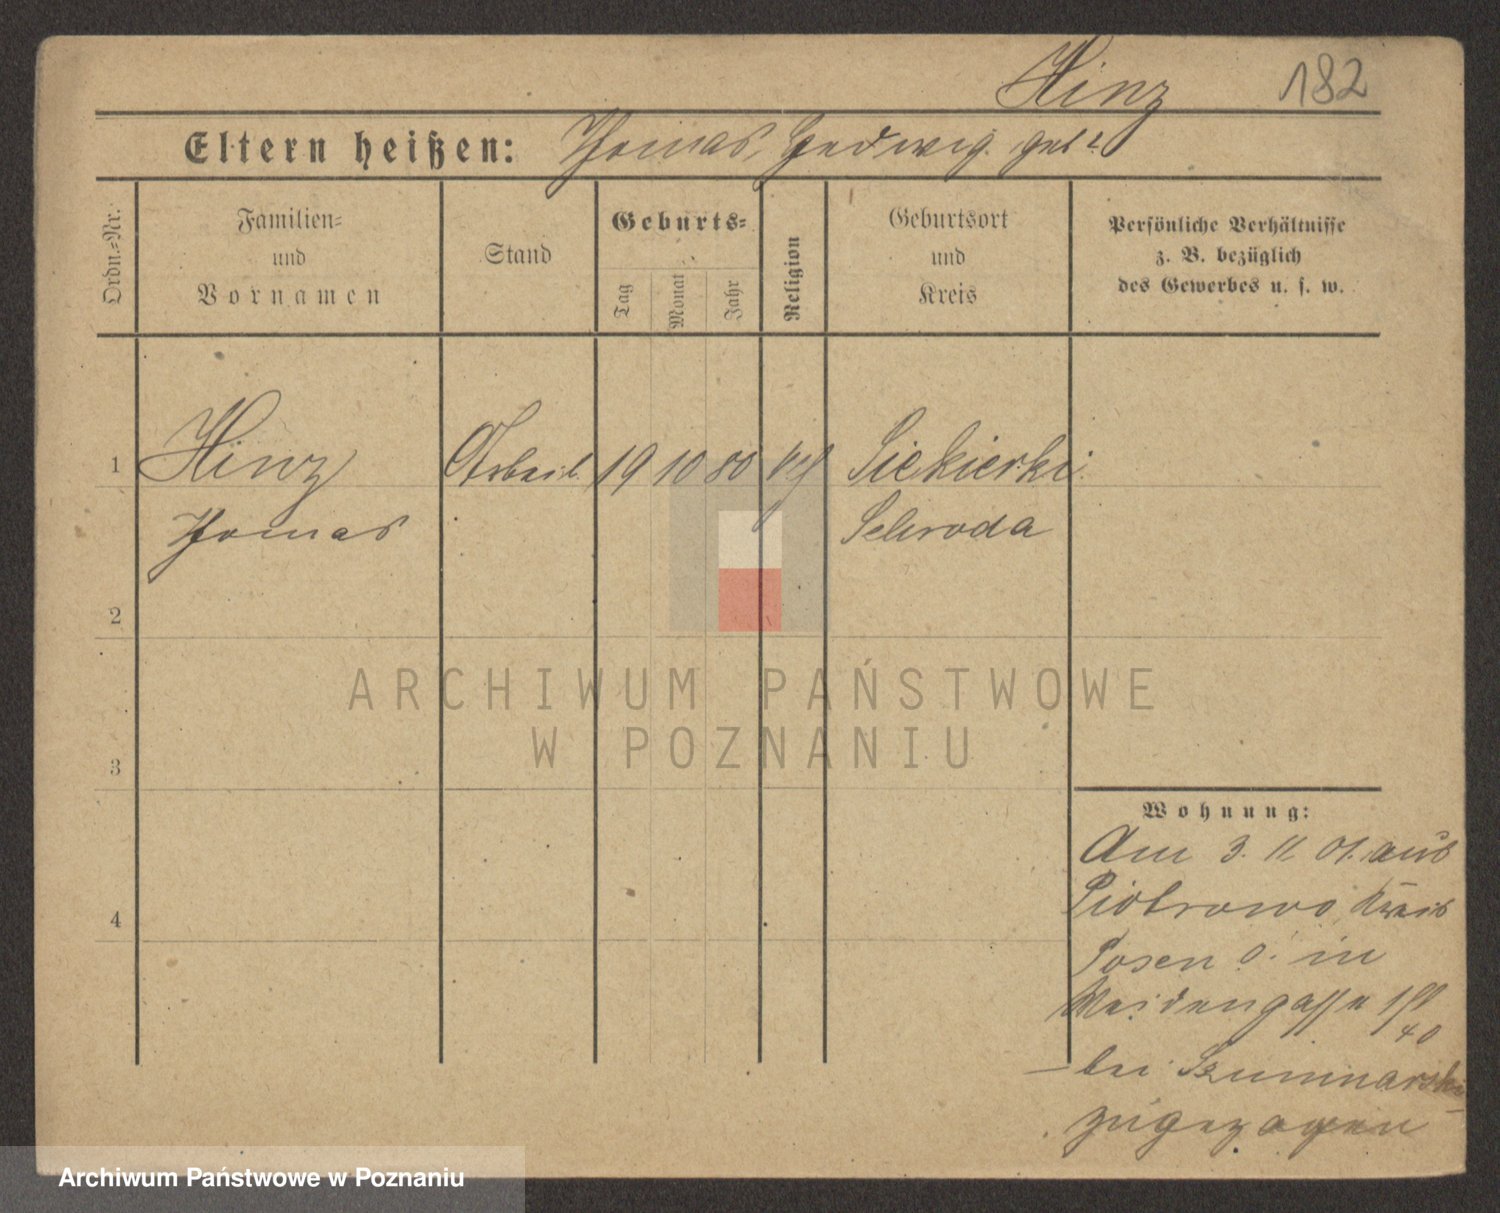 Hinz 182
Eltern heißen: Thomas, Hedwig geb.
Ordn.=Nr.
Familien=
und
Vornamen
Stand
Geburts=
Tag
Monat
Jahr
Religion
Geburtsort
und
Kreis
Persönliche Verhältnisse
z. B. bezüglich
des Gewerbes u. s. w.
1 Hinz Arbeit. 19 10 80 Siekierki
Thomas Schroda
2
3
4
ARCHIWUM PAŃSTWOWE
W POZNANIU
Wohnung:
Am 3. 11. 01. aus
Piotrowo, Kreis
Posen O. in
Weidengasse
40
bei Szumnarski
zugezogen
Archiwum Państwowe w Poznaniu